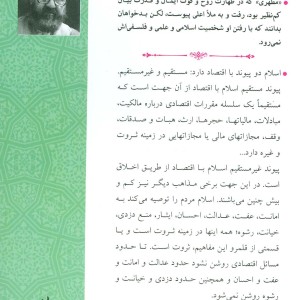 «مطهری» که در طهارت روح و قوت ایمان و قدرت بیان
کم‌نظیر بود، رفت و به ملأ اعلی پیوست، لکن بدخواهان
بدانند که با رفتن او شخصیت اسلامی و علمی و فلسفی‌اش
نمی‌رود.
اسلام دو پیوند با اقتصاد دارد: مستقیم و غیرمستقیم.
پیوند مستقیم اسلام با اقتصاد از آن جهت است که
مستقیماً یک سلسله مقررات اقتصادی درباره مالکیت،
مبادلات، مالیاتها، حجرها، ارث، هبات و صدقات،
وقف، مجازاتهای مالی یا مجازاتهایی در زمینه ثروت
و غیره دارد...
پیوند غیرمستقیم اسلام با اقتصاد از طریق اخلاق
است. در این جهت برخی مذاهب دیگر نیز کم و
بیش چنین می‌باشند. اسلام مردم را توصیه می‌کند به
امانت، عفت، عدالت، احسان، ایثار، منع دزدی،
خیانت، رشوه؛ همه اینها در زمینه ثروت است و یا
قسمتی از قلمرو این مفاهیم، ثروت است. تا حدود
مسائل اقتصادی روشن نشود حدود عدالت و امانت و
عفت و احسان و همچنین حدود دزدی و خیانت و
رشوه روشن نمی‌شود.